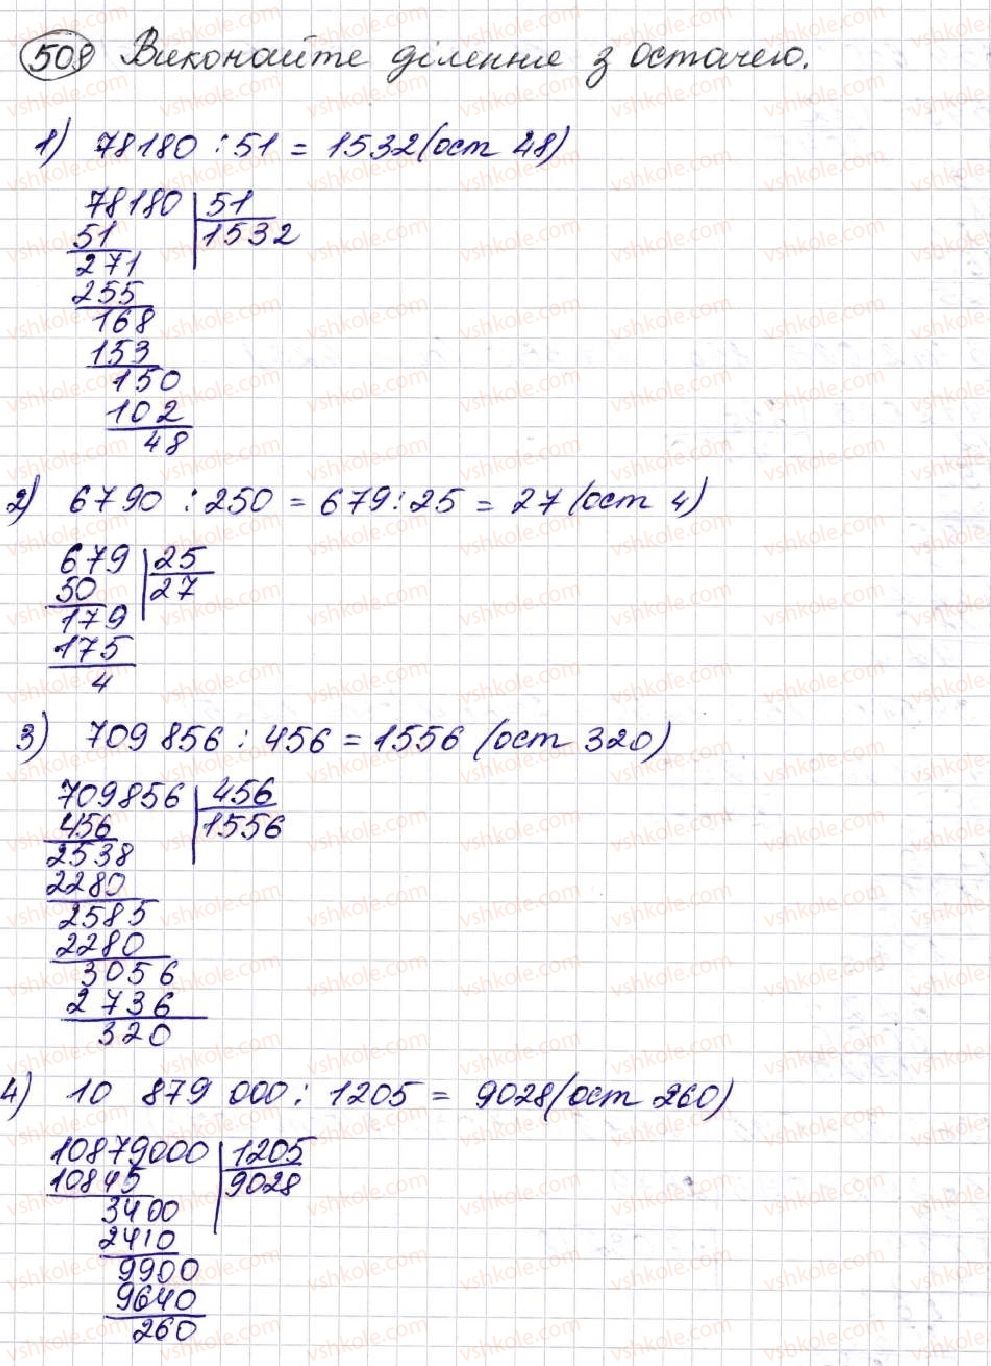 508 Виконайте ділення з остачею.
1) 78180 : 51 = 1532 (ост 48)
78180 51
51 1532
271
255
168
153
150
102
48
2) 6790 : 250 = 679 : 25 = 27 (ост 4)
679 25
50 27
179
175
4
3) 709 856 : 456 = 1556 (ост 320)
709856 456
456 1556
2538
2280
2585
2280
3056
2736
320
4) 10 879 000 : 1205 = 9028 (ост 260)
10879000 1205
10845 9028
3400
2410
9900
9640
260
vshkole.com